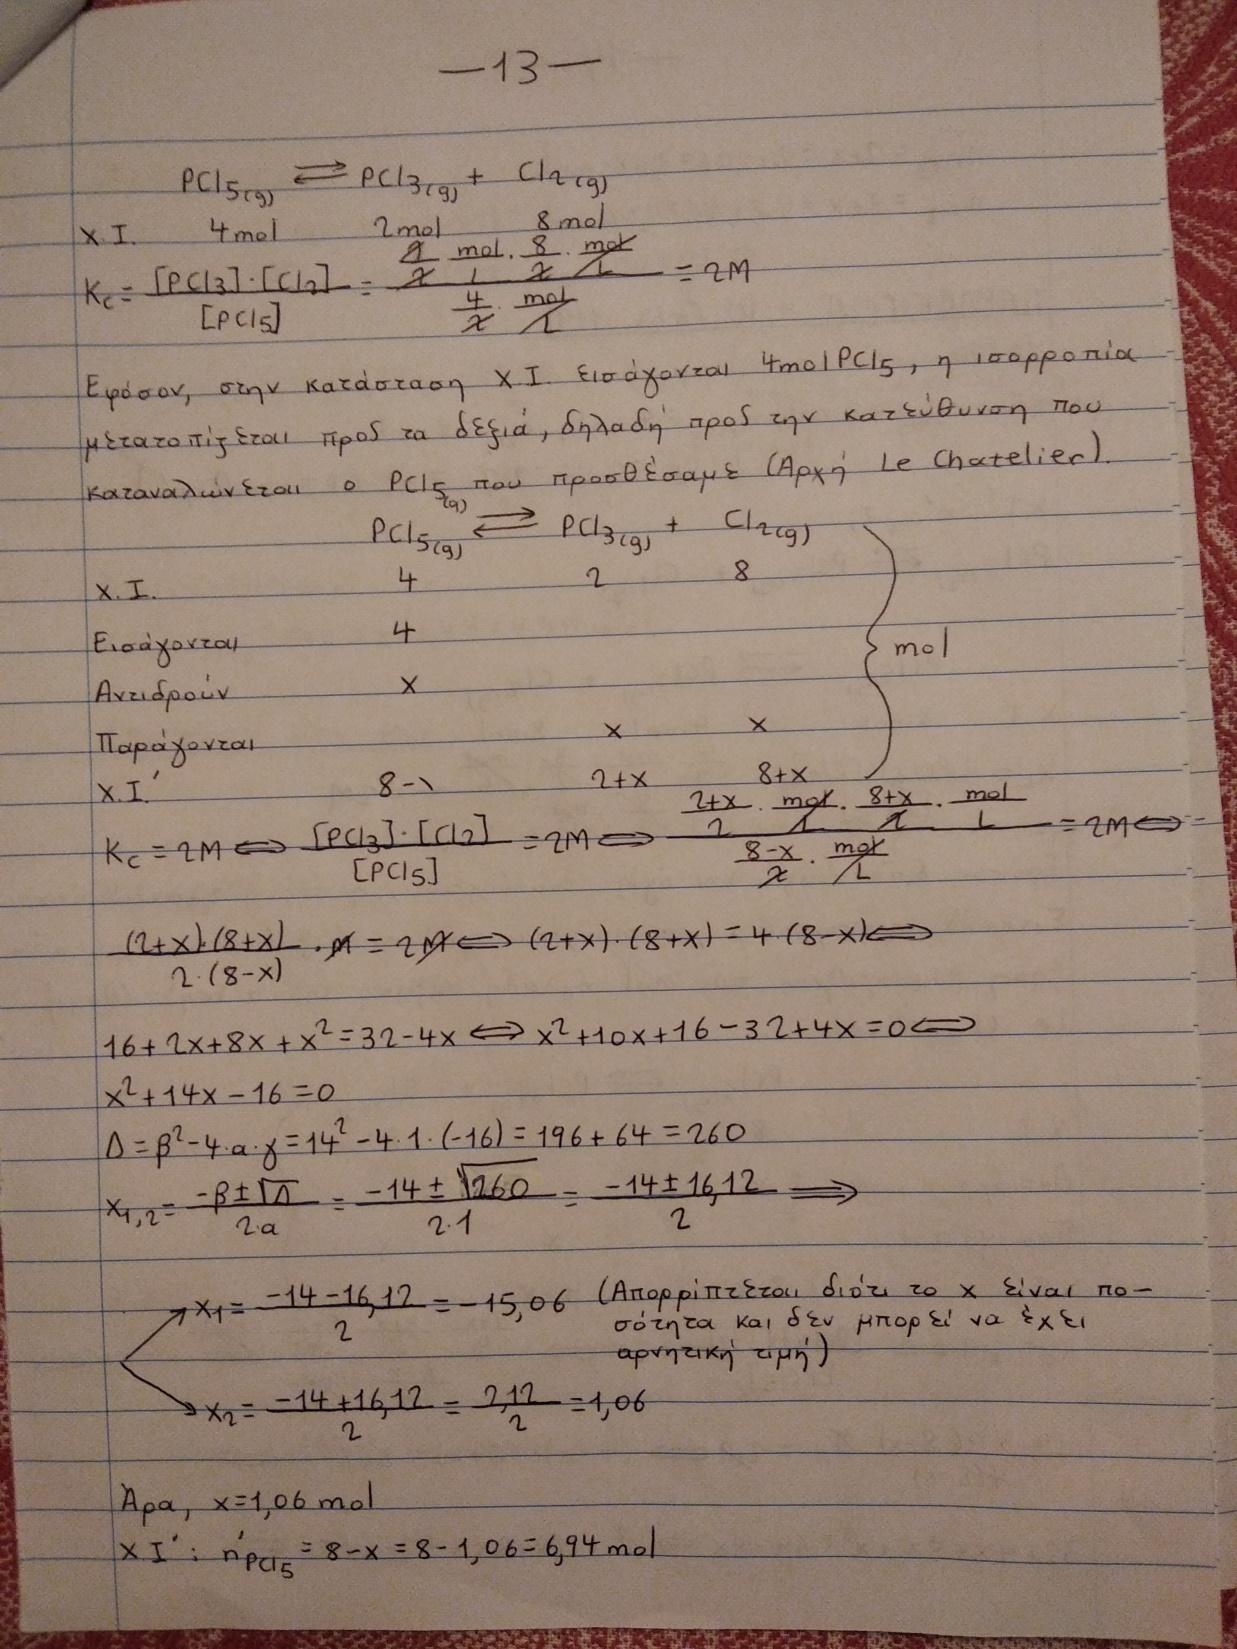 —13—
PCl5(g) ⇌ PCl3(g) + Cl2(g)
Χ.Ι. 4mol 2mol 8mol
Kc = [PCl3]·[Cl2] / [PCl5] = (2/2 mol/L · 8/2 · mol/L) / (4/2 · mol/L) = 2M
Εφόσον, στην κατάσταση Χ.Ι. εισάγονται 4mol PCl5, η ισορροπία
μετατοπίζεται προς τα δεξιά, δηλαδή προς την κατεύθυνση που
καταναλώνεται ο PCl5(g) που προσθέσαμε (Αρχή Le Chatelier).
PCl5(g) ⇌ PCl3(g) + Cl2(g)
Χ.Ι. 4 2 8
Εισάγονται 4
Αντιδρούν x
mol
Παράγονται x x
Χ.Ι.΄ 8-x 2+x 8+x
Kc = 2M ⇔ [PCl3]·[Cl2] / [PCl5] = 2M ⇔ (2+x/2 · mol/L · 8+x/2 · mol/L) / (8-x/2 · mol/L) = 2M ⇔
(2+x)·(8+x) / 2·(8-x) · M = 2M ⇔ (2+x)·(8+x) = 4·(8-x) ⇔
16+2x+8x+x² = 32-4x ⇔ x²+10x+16-32+4x=0 ⇔
x²+14x-16=0
Δ = β²-4·α·γ = 14²-4·1·(-16) = 196+64 = 260
x1,2 = -β±√Δ / 2·α = -14±√260 / 2·1 = -14±16,12 / 2 ⇒
x1 = -14-16,12 / 2 = -15,06 (Απορρίπτεται διότι το x είναι πο-
σότητα και δεν μπορεί να έχει
αρνητική τιμή)
x2 = -14+16,12 / 2 = 2,12 / 2 = 1,06
Άρα, x=1,06 mol
Χ Ι΄: n΄PCl5 = 8-x = 8-1,06 = 6,94 mol